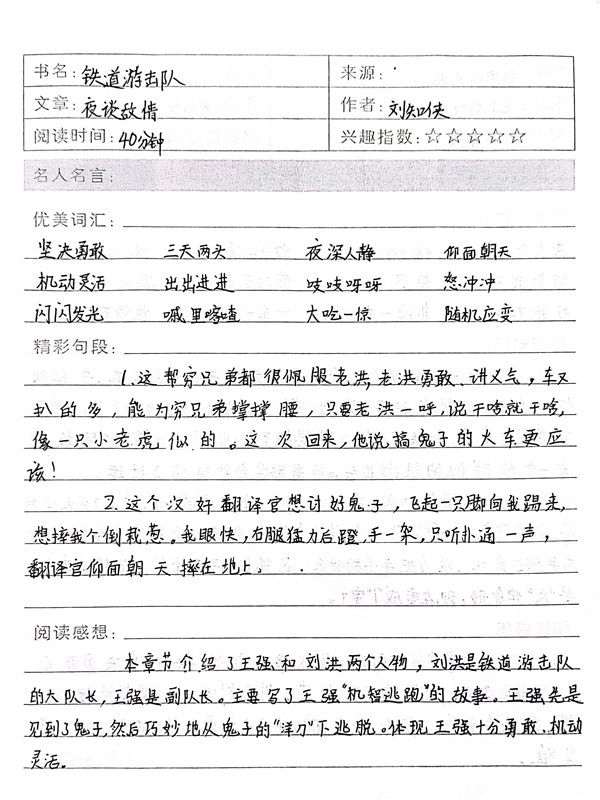 书名：铁道游击队 来源：
文章：夜谈敌情 作者：刘知侠
阅读时间：40分钟 兴趣指数：☆☆☆☆☆
名人名言：
优美词汇：
坚决勇敢 三天两头 夜深人静 仰面朝天
机动灵活 出出进进 吱吱呀呀 怒冲冲
闪闪发光 嘁里喀喳 大吃一惊 随机应变
精彩句段：
1.这帮穷兄弟都很佩服老洪,老洪勇敢、讲义气，车又
扒的多，能为穷兄弟撑撑腰，只要老洪一呼,说干啥就干啥,
像一只小老虎似的。这次回来,他说搞鬼子的火车更应
该！
2.这个汉奸翻译官想讨好鬼子，飞起一只脚向我踢来,
想摔我个倒栽葱。我眼快,右腿猛力后蹬,手一架,只听扑通一声,
翻译官仰面朝天摔在地上.
阅读感想：
本章节介绍了王强和刘洪两个人物，刘洪是铁道游击队
的大队长,王强是副队长。主要写了王强"机智逃跑"的故事。王强先是
见到了鬼子,然后巧妙地从鬼子的"洋刀"下逃脱。体现王强十分勇敢、机动
灵活。